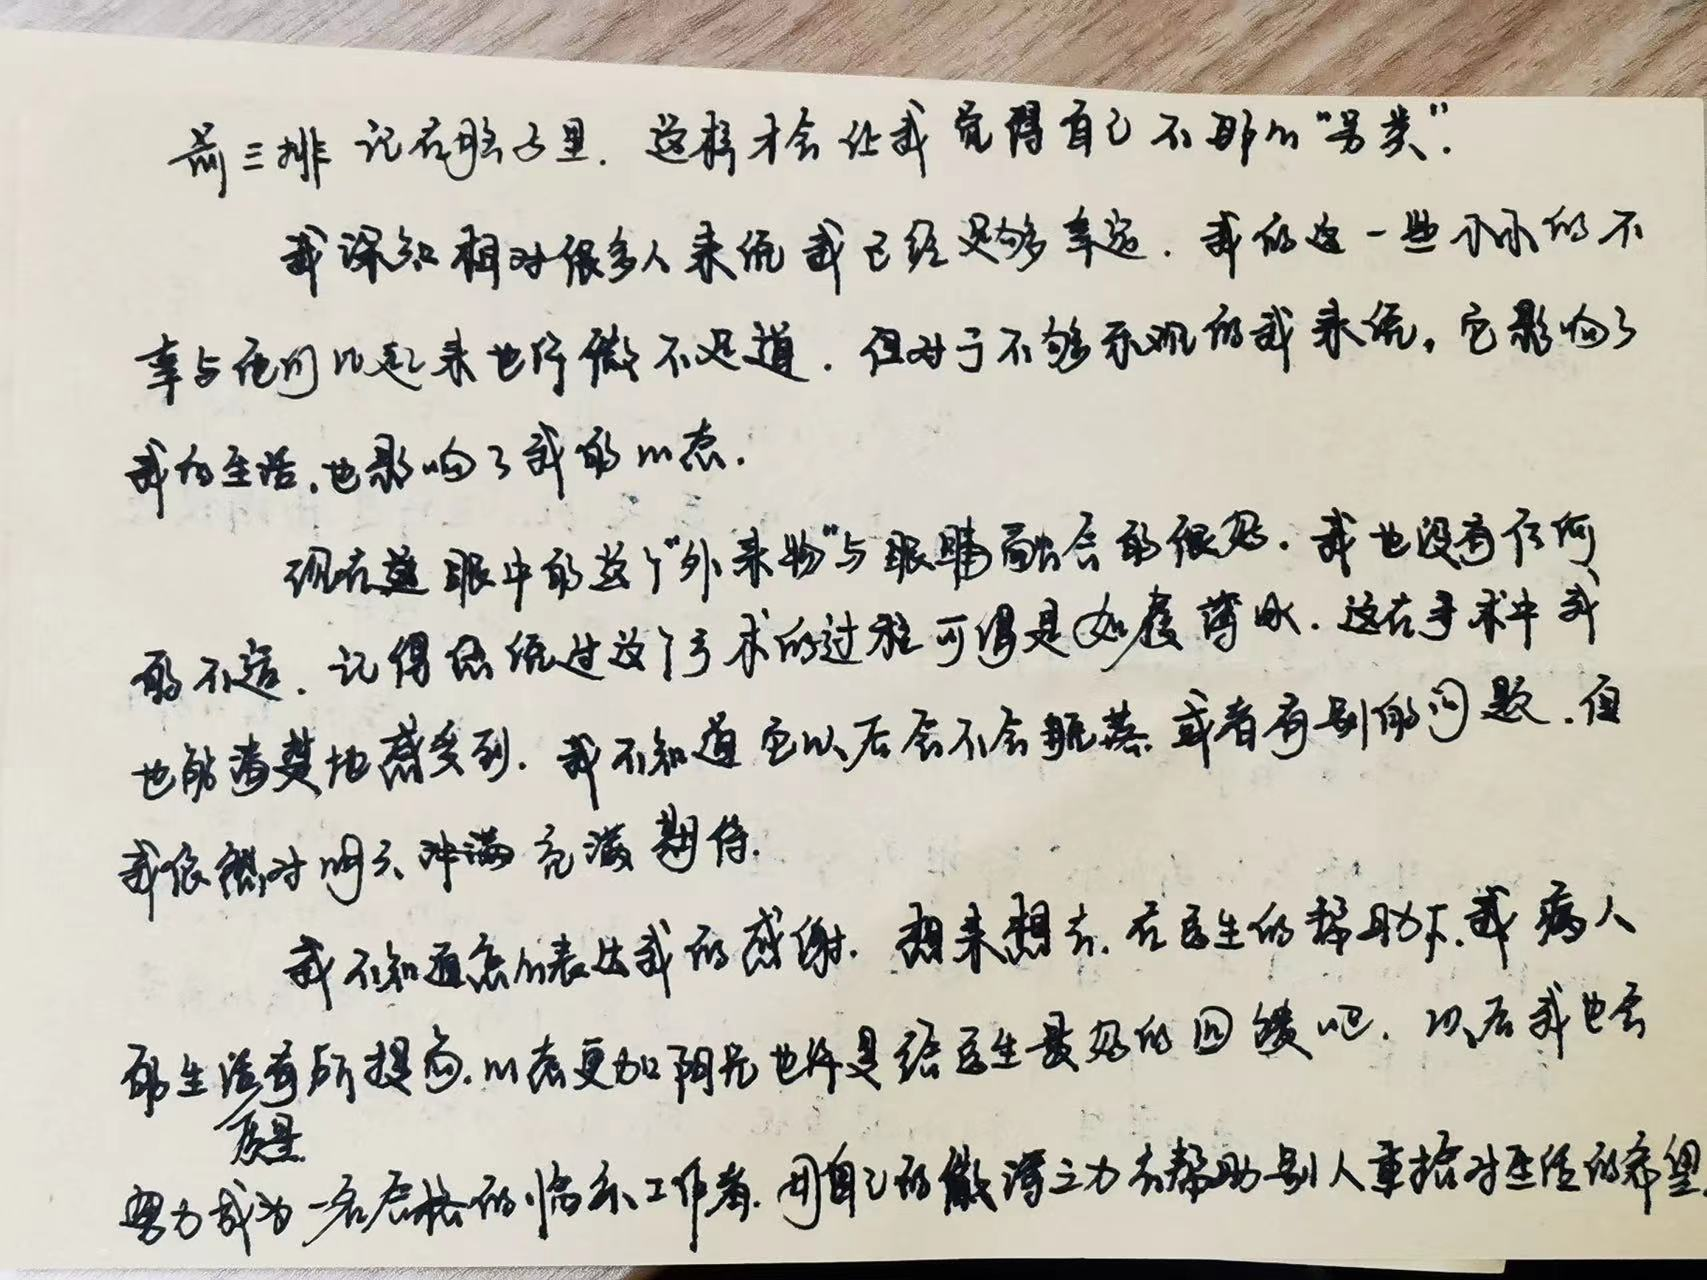 前三排记在脑子里.这样才会让我觉得自己不那么"另类".
我深知相对很多人来说我已经足够幸运.我的这一些小小的不
幸与他们比起来也许微不足道.但对于不够乐观的我来说,它影响了
我的生活,也影响了我的心态.
现在这眼中的这个"外来物"与眼睛融合的很好.我也没有任何
的不适.记得您说过这个手术的过程可谓是如履薄冰.这在手术中我
也能清楚地感受到.我不知道它以后会不会脱落.或者有别的问题.但
我依然对明天充满期待.
我不知道怎么表达我的感谢.想来想去.在医生的帮助下.我病人
的生活有所提高.心态更加阳光也许是给医生最好的回馈吧.以后我也会
质量
努力成为一名合格的临床工作者.用自己的微薄之力去帮助别人重拾对生活的希望.